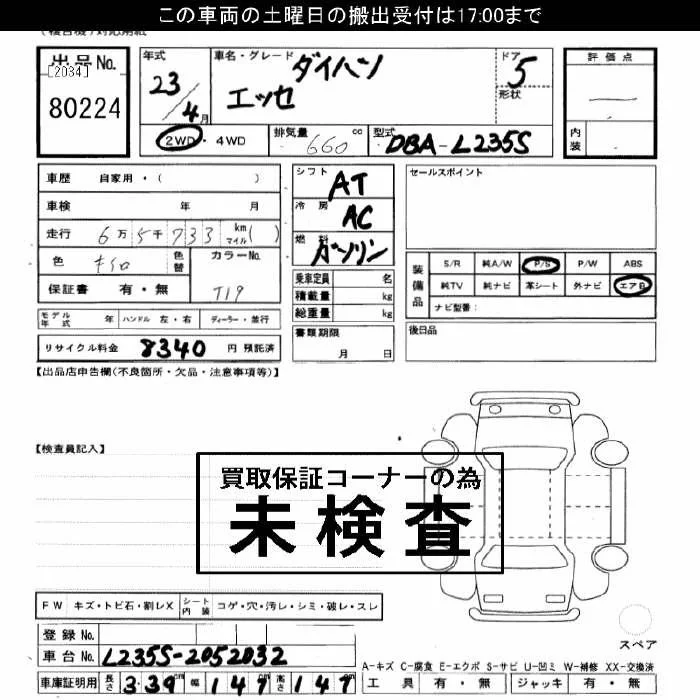 この車両の土曜日の搬出受付は17:00まで
出品No.
[2034]
80224
年式
23/4月
車名・グレード
ダイハツ
エッセ
ドア
5
形状
評価点
内装
2WD・4WD
排気量 660 cc
型式 DBA-L235S
車歴 自家用・( )
車検 年 月
走行 6万5千733 km マイル( )
色 キイロ 色替
カラーNo.
T19
保証書 有・無
シフト AT
冷房 AC
燃料 ガソリン
乗車定員 名
積載量 kg
総重量 kg
書類期限
月 日
セールスポイント
装備品
S/R 純A/W P/S P/W ABS
純TV 純ナビ 革シート 外ナビ エアB
ナビ型番:
後日品
モデル年式 年 ハンドル 左・右 ディーラー・並行
リサイクル料金 8340 円 預託済
【出品店申告欄(不良箇所・欠品・注意事項等)】
【検査員記入】
買取保証コーナーの為
未検査
FW キズ・トビ石・割レX シート内装 コゲ・穴・汚レ・シミ・破レ・スレ
登録No.
車台No. L235S-2052032
車庫証明用 長さ 3.39 幅 147 高さ 147
スペア
A-キズ C-腐食 E-エクボ S-サビ U-凹ミ W-補修 XX-交換済
工具 有・無 ジャッキ 有・無